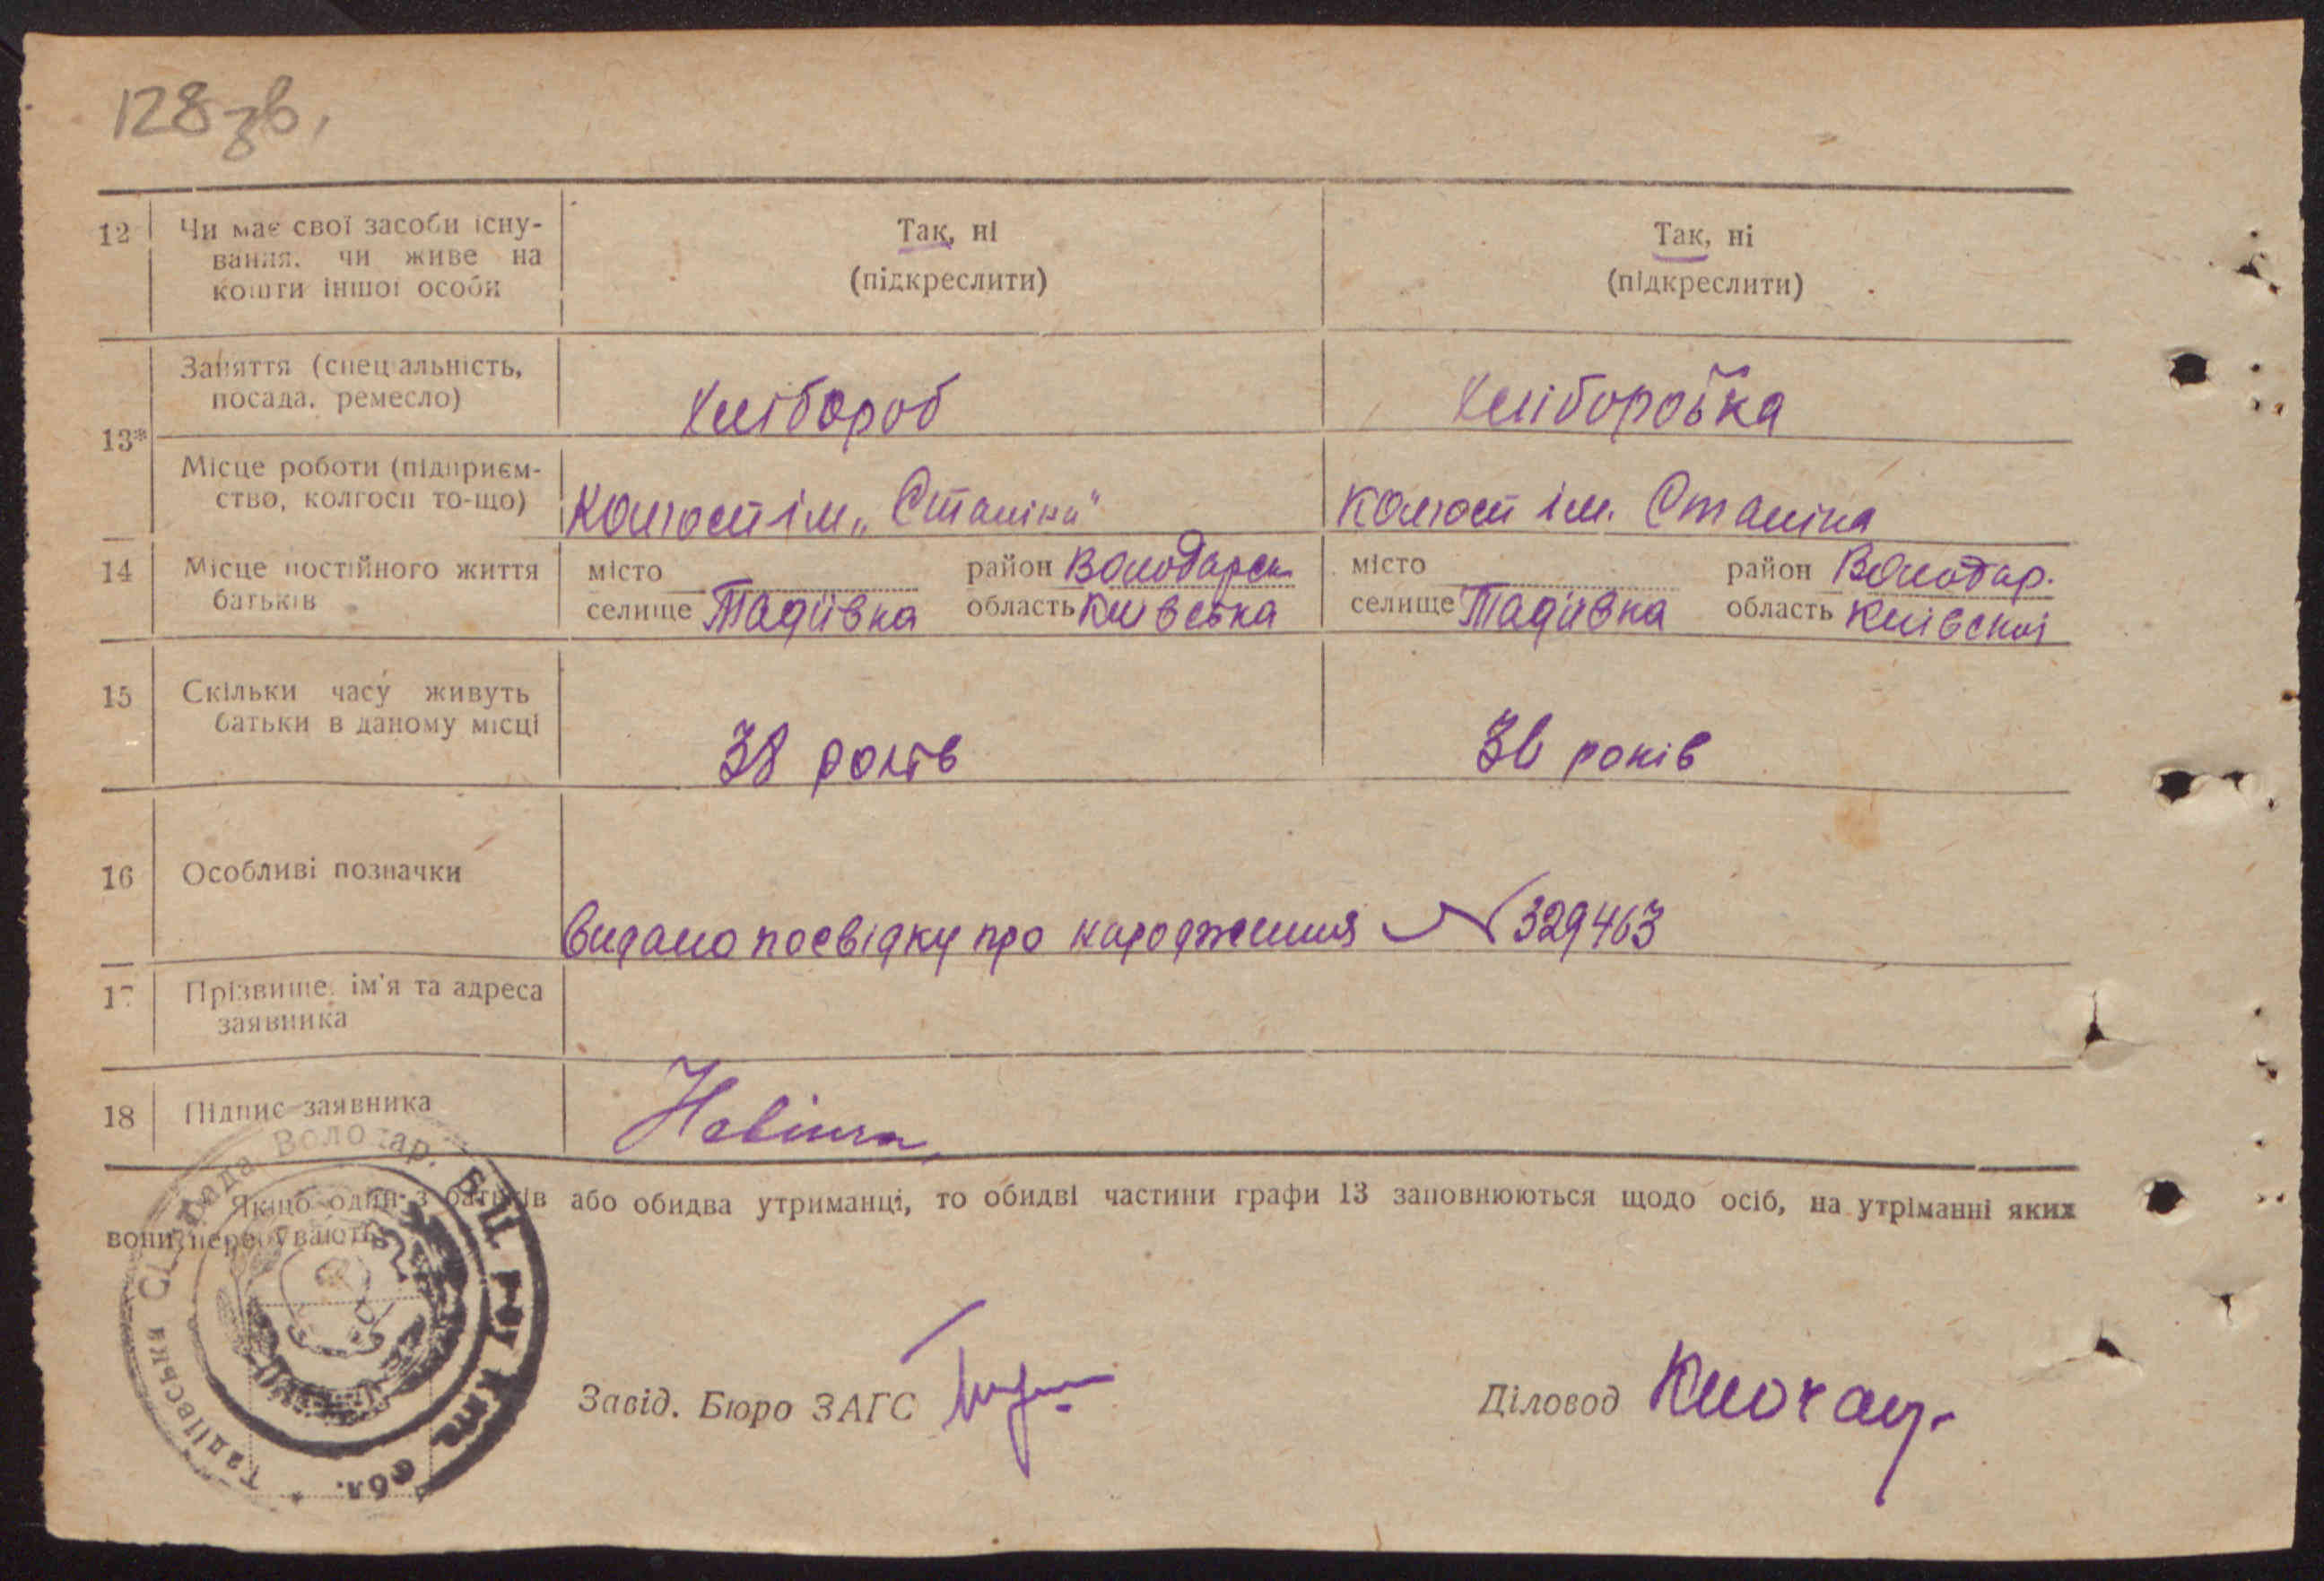 128 зв.
12 Чи має свої засоби існу-
вання, чи живе на
кошти іншої особи
Так, ні
(підкреслити)
Так, ні
(підкреслити)
13*
Заняття (спеціальність,
посада, ремесло)
Хлібороб
Хліборобка
Місце роботи (підприєм-
ство, колгосп то-що)
Колгосп ім. „Сталіна"
Колгосп ім. Сталіна
14 Місце постійного життя
батьків
місто район Володарськ
селище Тадіївка область Київська
місто район Володар.
селище Тадіївка область Київської
15 Скільки часу живуть
батьки в даному місці
38 років
36 років
16 Особливі позначки
Видано посвідку про народження N 329463
17 Прізвище, ім'я та адреса
заявника
18 Підпис заявника
Якщо один з батьків або обидва утриманці, то обидві частини графи 13 заповнюються щодо осіб, на утріманні яких
вони перебувають
Тадіївська Сільрада Володар. обл.
Завід. Бюро ЗАГС
Діловод